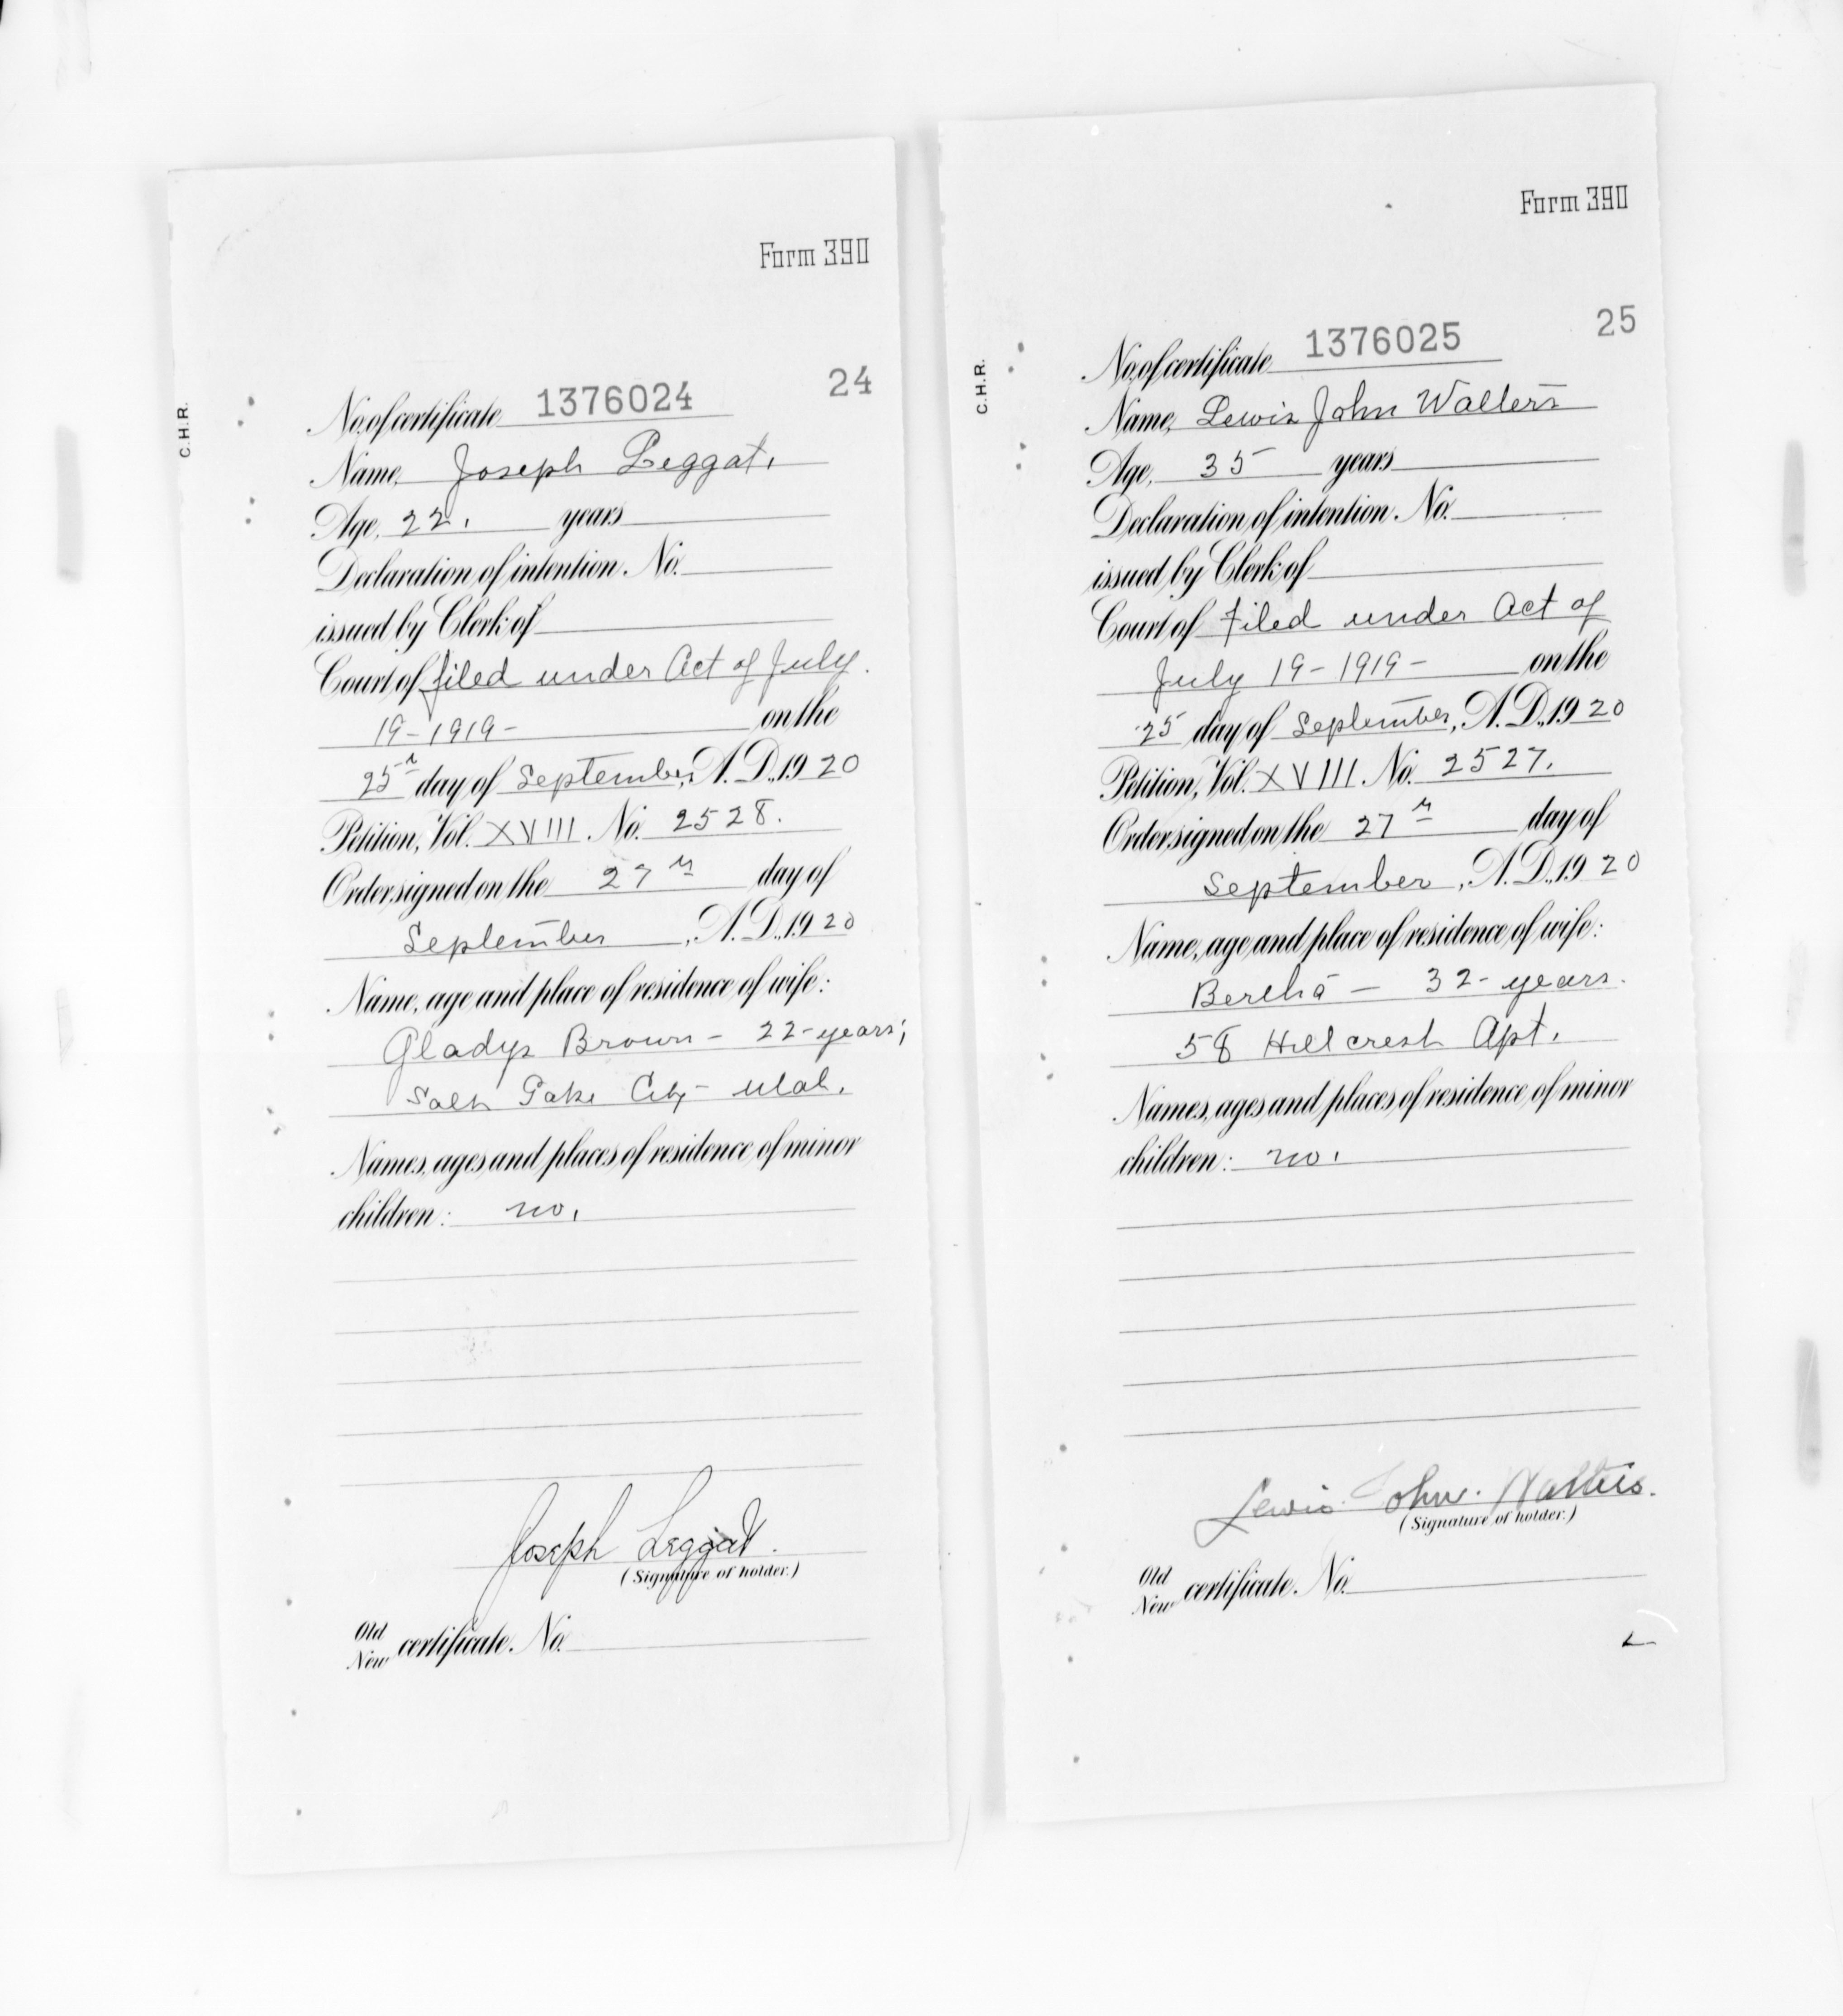 Form 390
C.H.R.
24
No. of certificate 1376024
Name, Joseph Leggat.
Age, 22. years
Declaration of intention. No.
issued by Clerk of
Court of filed under Act of July
19-1919- on the
25th day of September, A.D., 1920
Petition, Vol. XVIII. No. 2528.
Order signed on the 27th day of
September, A.D., 1920
Name, age and place of residence of wife:
Gladys Brown - 22-years;
Salt Lake City - Utah.
Names, ages and places of residence of minor
children: no.
Joseph Leggat.
(Signature of holder.)
Old
New certificate. No.
Form 390
C.H.R.
25
No. of certificate 1376025
Name, Lewis John Walters
Age, 35 years
Declaration of intention. No.
issued by Clerk of
Court of filed under Act of
July 19-1919- on the
25 day of September, A.D., 1920
Petition, Vol. XVIII. No. 2527.
Order signed on the 27th day of
September, A.D., 1920
Name, age and place of residence of wife:
Bertha - 32-years.
58 Hillcrest Apt.
Names, ages and places of residence of minor
children: no.
Lewis John Walters.
(Signature of holder.)
Old
New certificate. No.